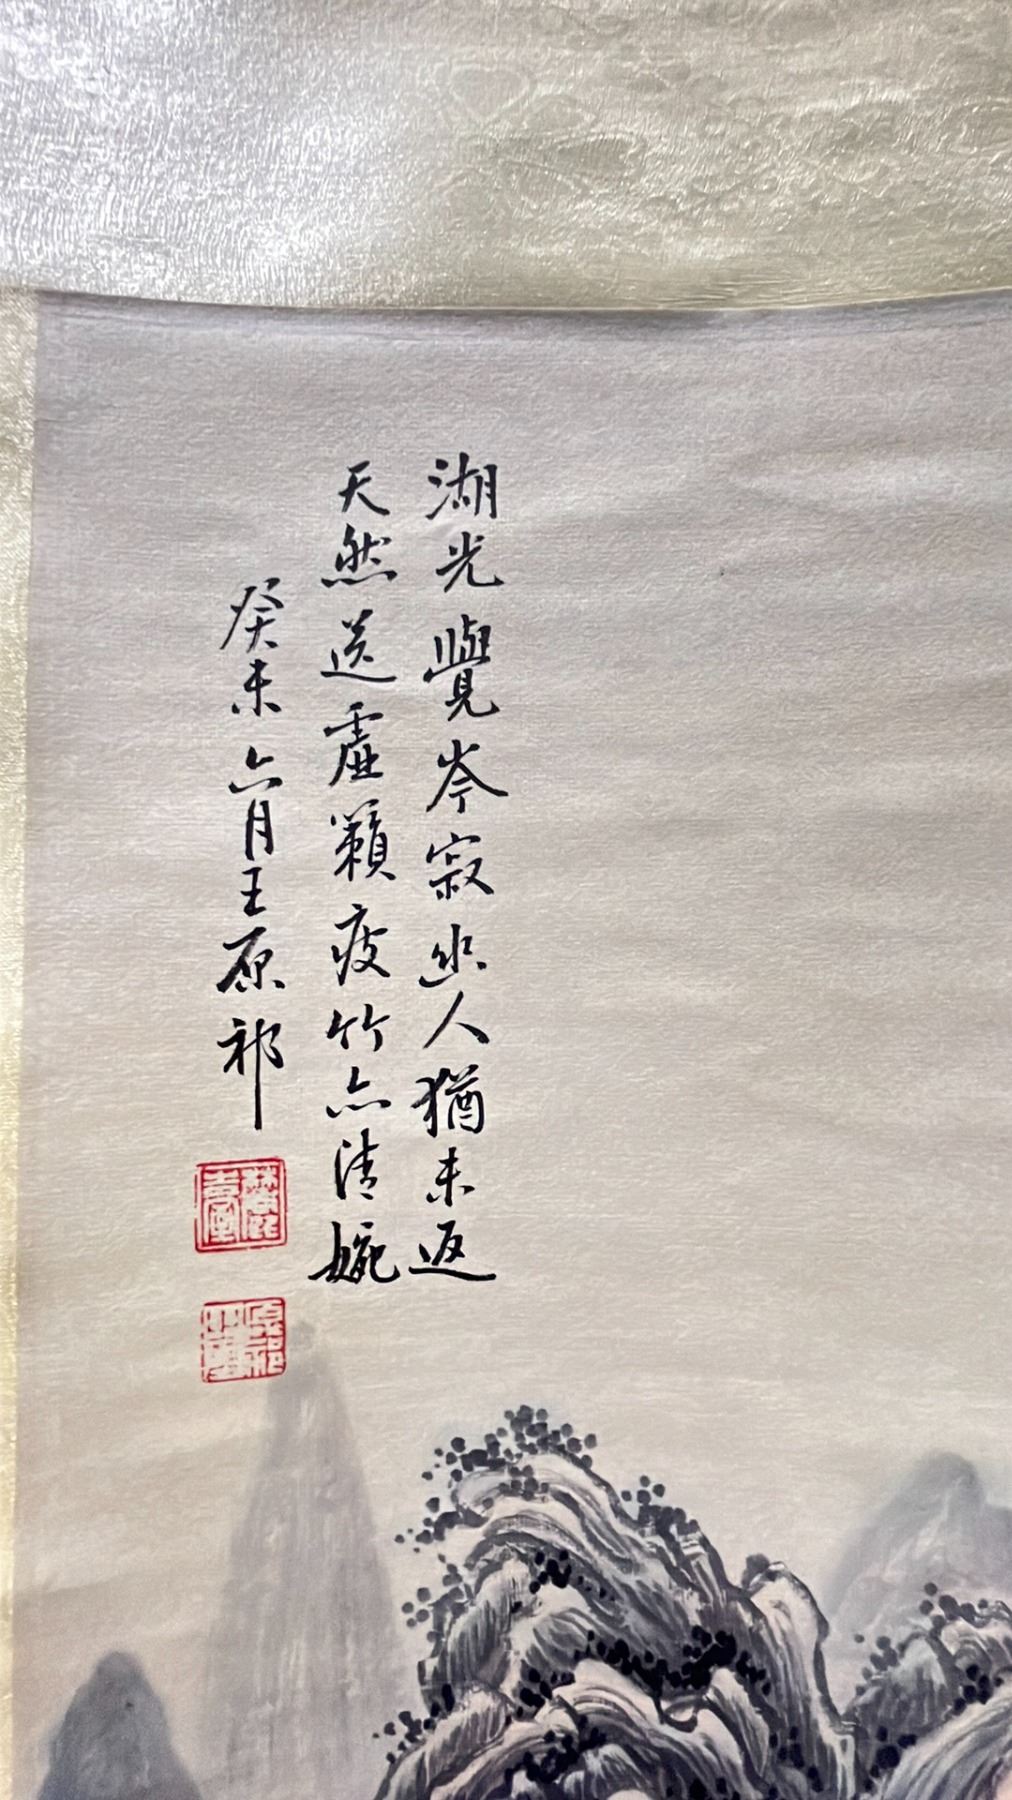 湖光覺岑寂幽人猶未返
天然送虛籟疲竹亦清婉
癸未六月王原祁
原祁